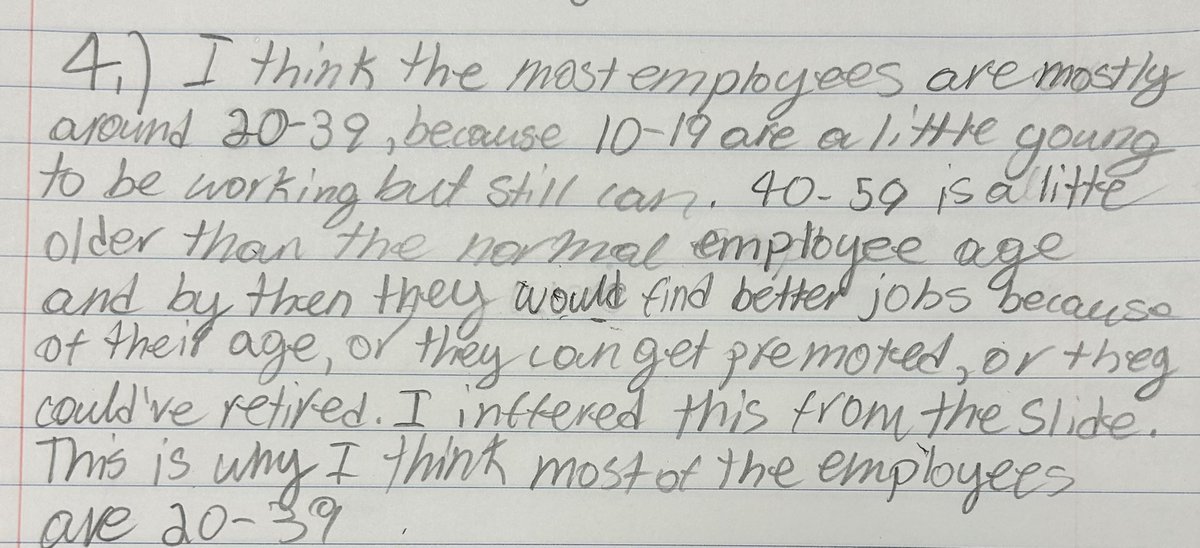 4.) I think the most employees are mostly
around 20-39, because 10-19 are a little young
to be working but still can. 40-59 is a little
older than the normal employee age
and by then they would find better jobs because
of their age, or they can get premoted, or they
could've retired. I inffered this from the Slide.
This is why I think most of the employees
are 20-39